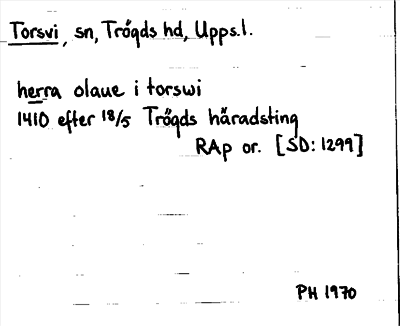 Torsvi, sn, Trögds hd, Upps.l.
herra olaue i torswi
1410 efter 18/5 Trögds häradsting
RAp or. [SD:1299]
PH 1970